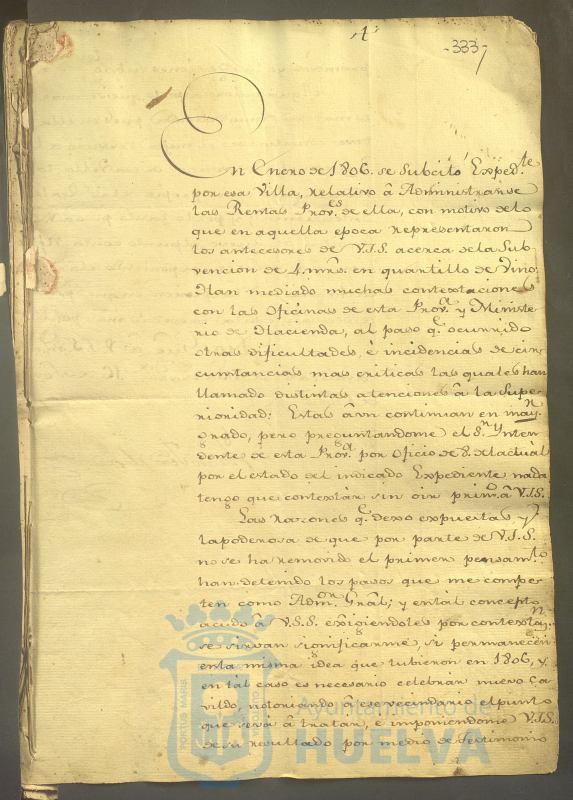 1
-333-
En Enero de 1806. se subcitó Exped.te
por esa Villa, relativo â Administrarse
las Rentas Prov.es de ella, con motivo de lo
que en aquella epoca representaron
los antecesores de V.S.S. acerca de la Sub-
vencion de 4. mrs. en quartillo de Vino:
Han mediado muchas contextaciones
con las Oficinas de esta Prov.a y Ministe-
rio de Hacienda, al paso q.e ocurrido
otras dificultades, è incidencias de cir-
cunstancias mas criticas las quales han
llamado distintas atenciones â la Supe-
rioridad: Estas aùn continuan en may.r
grado, pero preguntandome el S.r Ynten-
dente de esta Prov.a por oficio de 8. del actual
por el estado del indicado Expediente nada
tengo que contextàr sin oir prim.o â V.S.S.
Las Razones q.e dexo expuestas, y
la poderosa de que por parte de V.S.S.
no se ha removido el primer pensam.to
han detenido los pasos que me compe-
ten como Adm.or Gral; y en tal concepto
acudo â V.S.S. exigiendoles por contextaz.n
se sirvan significarme, si permanecen
en la misma idea que tubieron en 1806, y
en tàl caso es necesario celebràr nuevo Ca-
vildo, notoriando â ese vecindario el punto
que serà â tratar, è imponiendome V.S.S.
de su resultado por medio de Testimonio
PORTUS MARIS
Ayuntamiento de
HUELVA